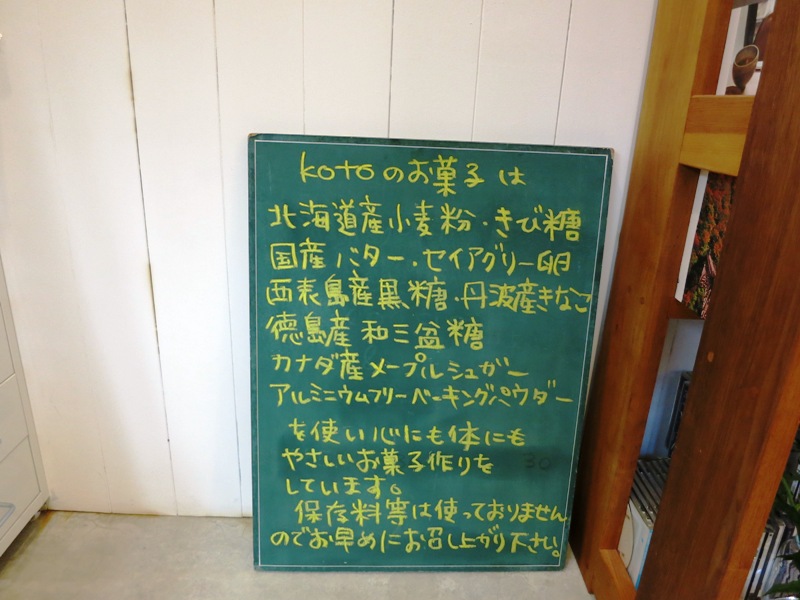 kotoのお菓子は
北海道産小麦粉・きび糖
国産バター・セイアグリー卵
西表島産黒糖・丹波産きなこ
徳島産和三盆糖
カナダ産メープルシュガー
アルミニウムフリーベーキングパウダー
を使い心にも体にも
やさしいお菓子作りを
しています。
保存料等は使っておりません
のでお早めにお召し上がり下さい。